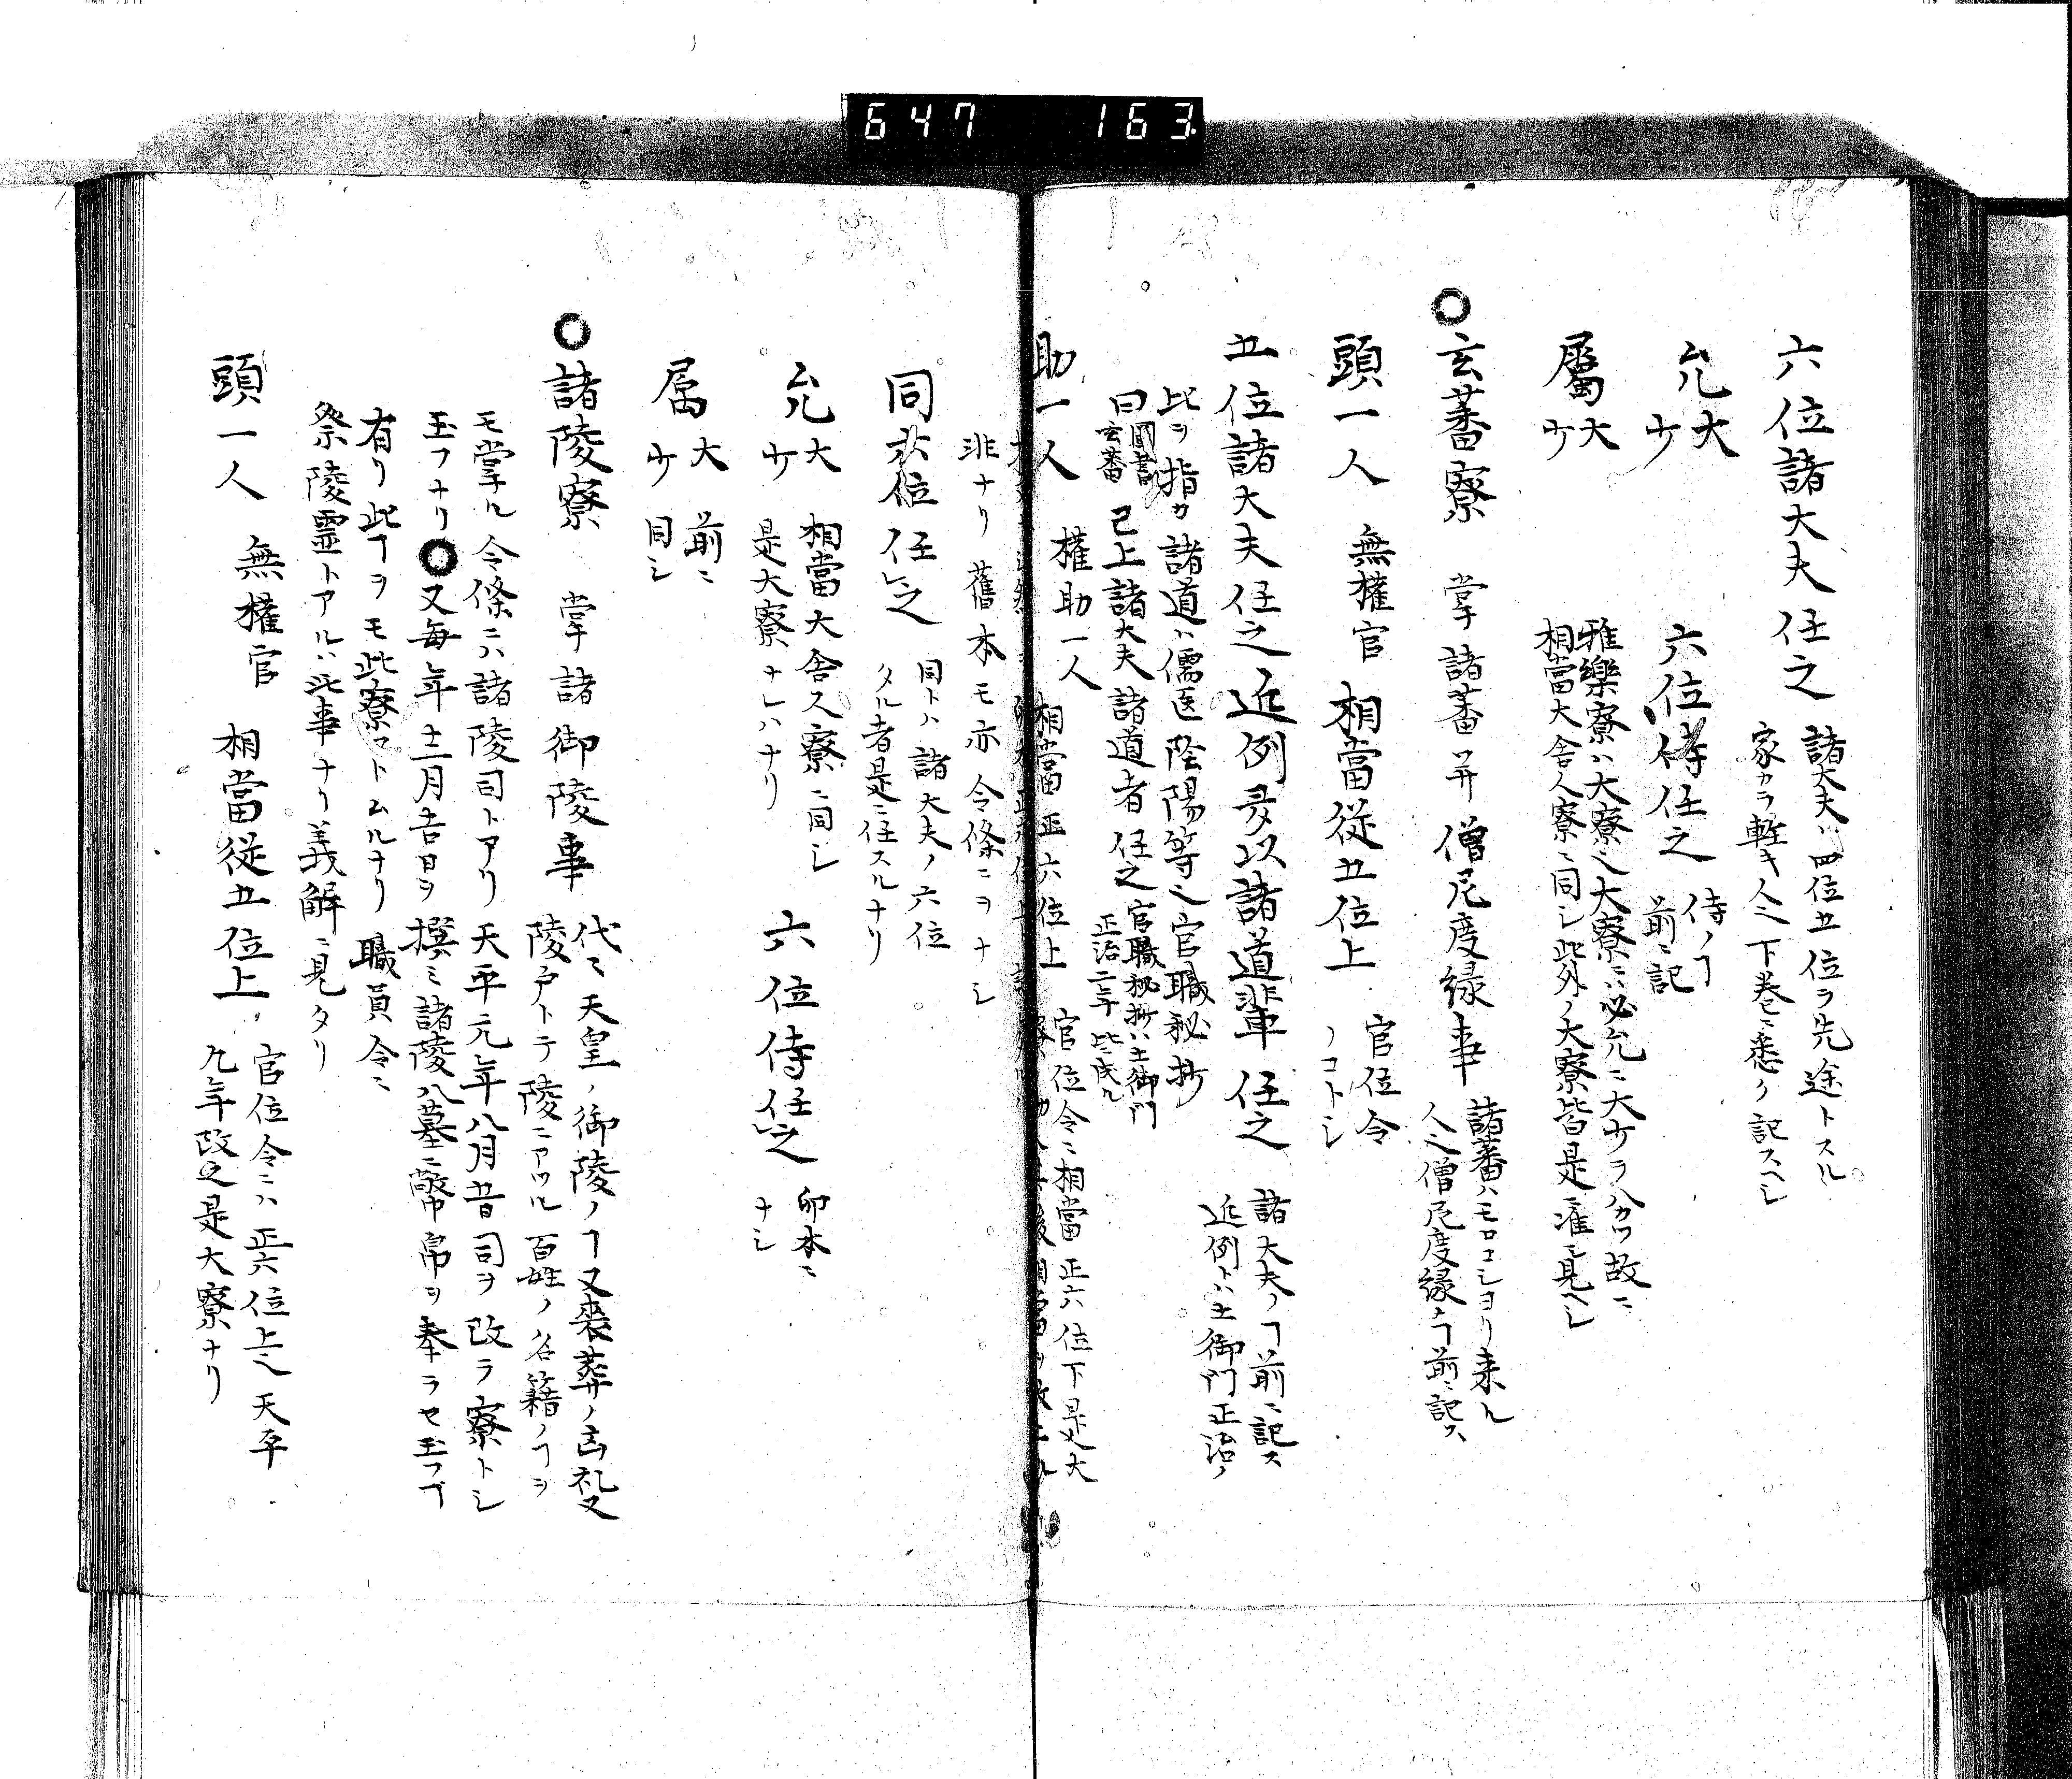 647 163
六位諸大夫任之
諸大夫ハ四位五位ヲ先途トスル
家カラ輕キ人也下巻ニ悉ク記スヘシ
允大少
六位侍任之
侍ノヿ
前ニ記
屬大少
雅樂寮ハ大寮也大寮ニハ必允ニ大少ヲ分カツ故ニ
相當大舎人寮ニ同シ此外ノ大寮皆是ニ准シ見ヘシ
玄蕃寮 掌諸蕃并僧尼度縁事
諸蕃ハモロコシヨリ来ル
人也僧尼度縁ノヿ前ニ記ス
頭一人 無權官 相當從五位上
官位令
ノコトシ
五位諸大夫任之近例多以諸道輩任之
諸大夫ノヿ前ニ記ス
近例トハ土御門正治ノ
比ヲ指カ諸道ハ儒医陰陽等也官職秘抄
曰圖書玄蕃已上諸大夫諸道者任之官職秘抄ハ土御門
正治二年此成ル
助一人 權助一人 相當正六位上
官位令ニ相當正六位下是大
非ナリ舊本モ亦令條ニヲナシ
同六位任之
同トハ諸大夫ノ六位
タル者是ニ任スルナリ
允大少
相當大舎人寮ニ同シ
是大寮ナレハナリ
六位侍任之
卯本ニ
ナシ
属大少
前ニ
同シ
諸陵寮 掌諸御陵事
代々天皇ノ御陵ノヿ又喪葬ノ凶礼又
陵戸トテ陵ニアツル百姓ノ名籍ノヿヲ
モ掌ル令條ニハ諸陵司トアリ天平元年八月昔司ヲ改ラ寮トシ
玉フナリ又毎年十二月吉日ヲ撰ミ諸陵八墓ニ幣帛ヲ奉ラセ玉フヿ
有リ此ヿヲモ此寮ツトムルナリ職員令ニ
祭陵霊トアルハ此事ナリ義解ニ見タリ
頭一人 無權官 相當從五位上
官位令ニハ正六位上也天平
九年改之是大寮ナリ